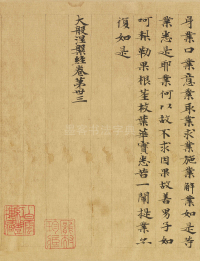 身業口業意業取業求業施業解業如是等
業悉是耶何以故不求因果故善男子如
呵梨勒果根莖枝葉華實悉一闡提業亦
復如是
大般涅槃經卷第卅三